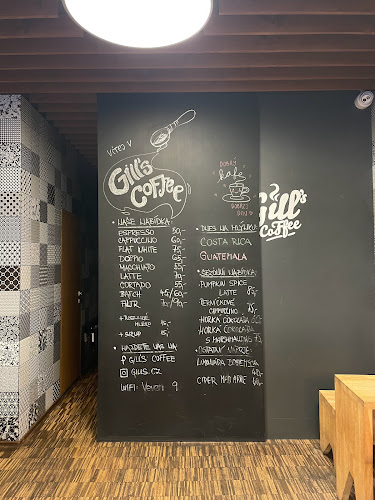 VÍTEJ V
Gill's
Coffee
• NAŠE NABÍDKA:
ESPRESSO 50,-
CAPPUCCINO 60,-
FLAT WHITE 75,-
DOPPIO
MACCHIATO 55,-
LATTE 70,-
CORTADO 55,-
BATCH 45/60,-
FILTR 70/90,-
+ SIRUP
• NAJDETE NÁS NA
f GILL'S COFFEE
GILLS.CZ
WIFI:
DOBRÝ
kafe
DOBREJ
DEN
• DNES NA MLÝNKU:
COSTA RICA
GUATEMALA
• SEZÓNNÍ NABÍDKA:
PUMPKIN SPICE
LATTE 85,-
PERNÍČKOVÉ
CAPPUCCINO 75,-
HORKÁ ČOKOLÁDA
HORKÁ ČOKOLÁDA
S MARSHMALLOWS 75
• OSTATNÍ NÁPOJE:
LIMONÁDA
Gill's
Coffee